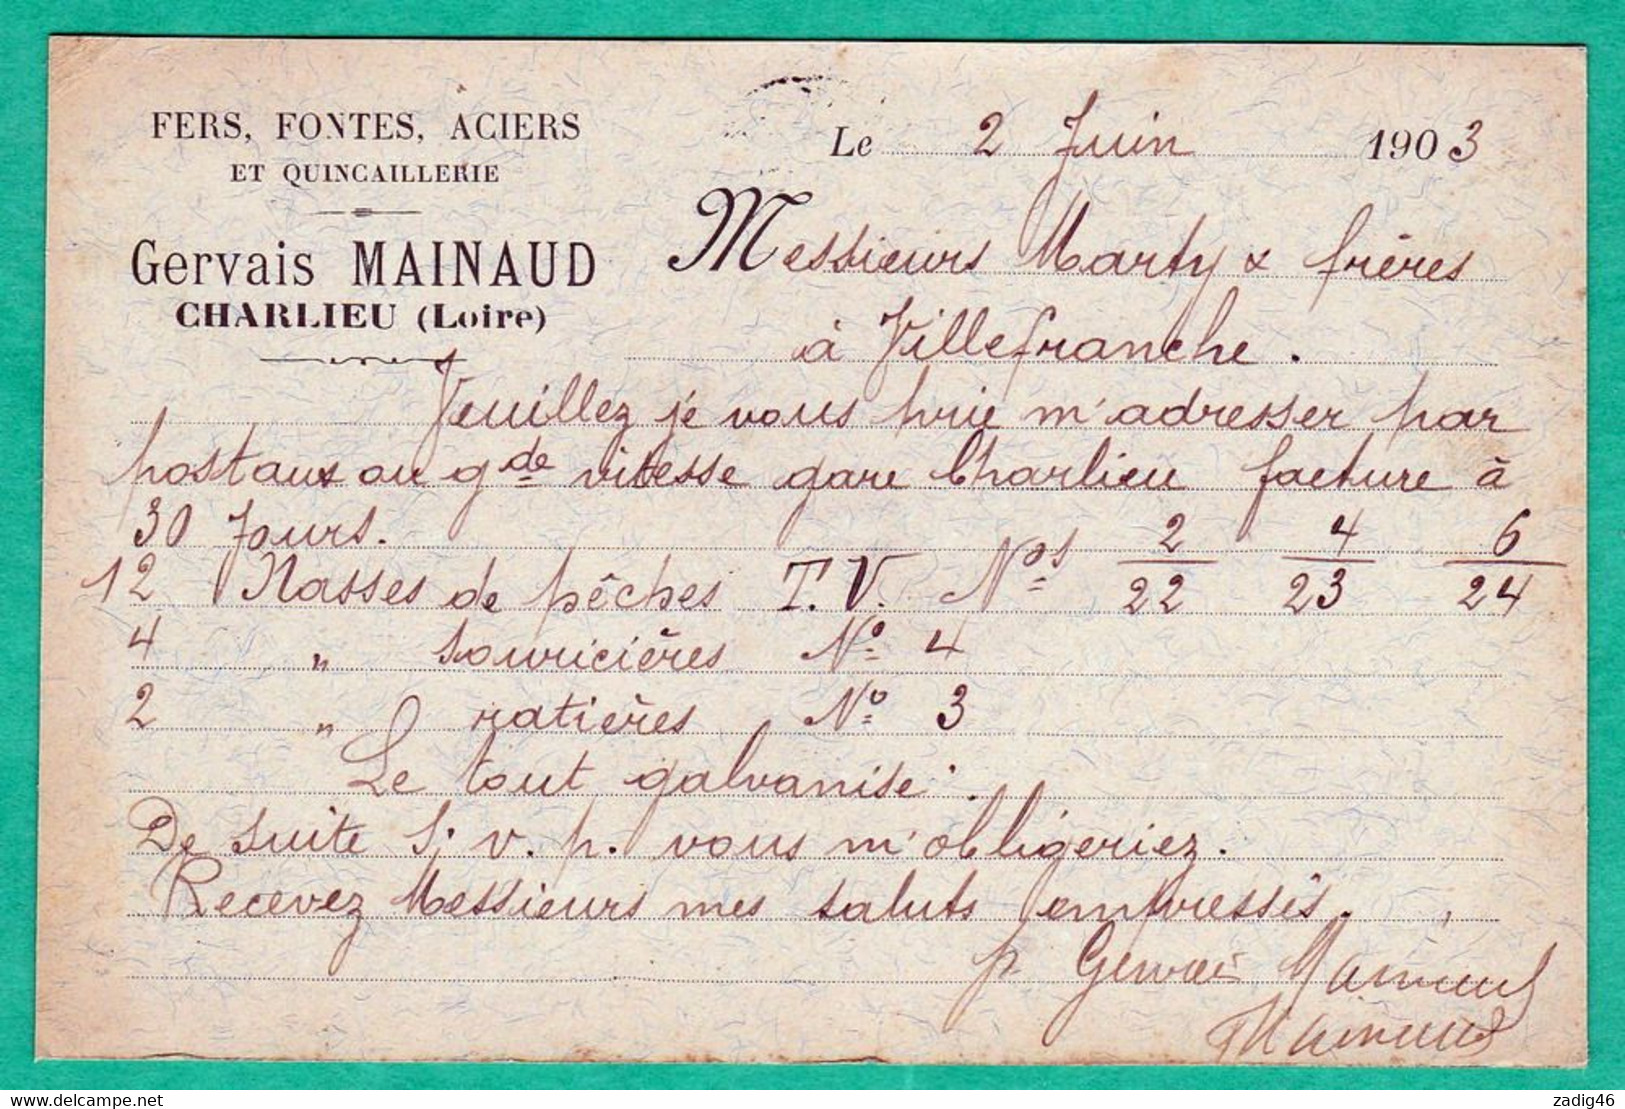 FERS, FONTES, ACIERS
ET QUINCAILLERIE
Gervais MAINAUD
CHARLIEU (Loire)
Le 2 Juin 1903
Messieurs Marty & frères
à Villefranche.
Veuillez je vous prie m'adresser par
postaux ou gde vitesse gare Charlieu facture à
30 Jours.
12 Nasses de pêches T.V. Nos 2/22 4/23 6/24
4 " souricières No 4
2 " ratières No 3
Le tout galvanisé.
De suite S.v.p. vous m'obligeriez.
Recevez Messieurs mes saluts empressés.
p. Gervais Mainaud
Mainaud
zadig46